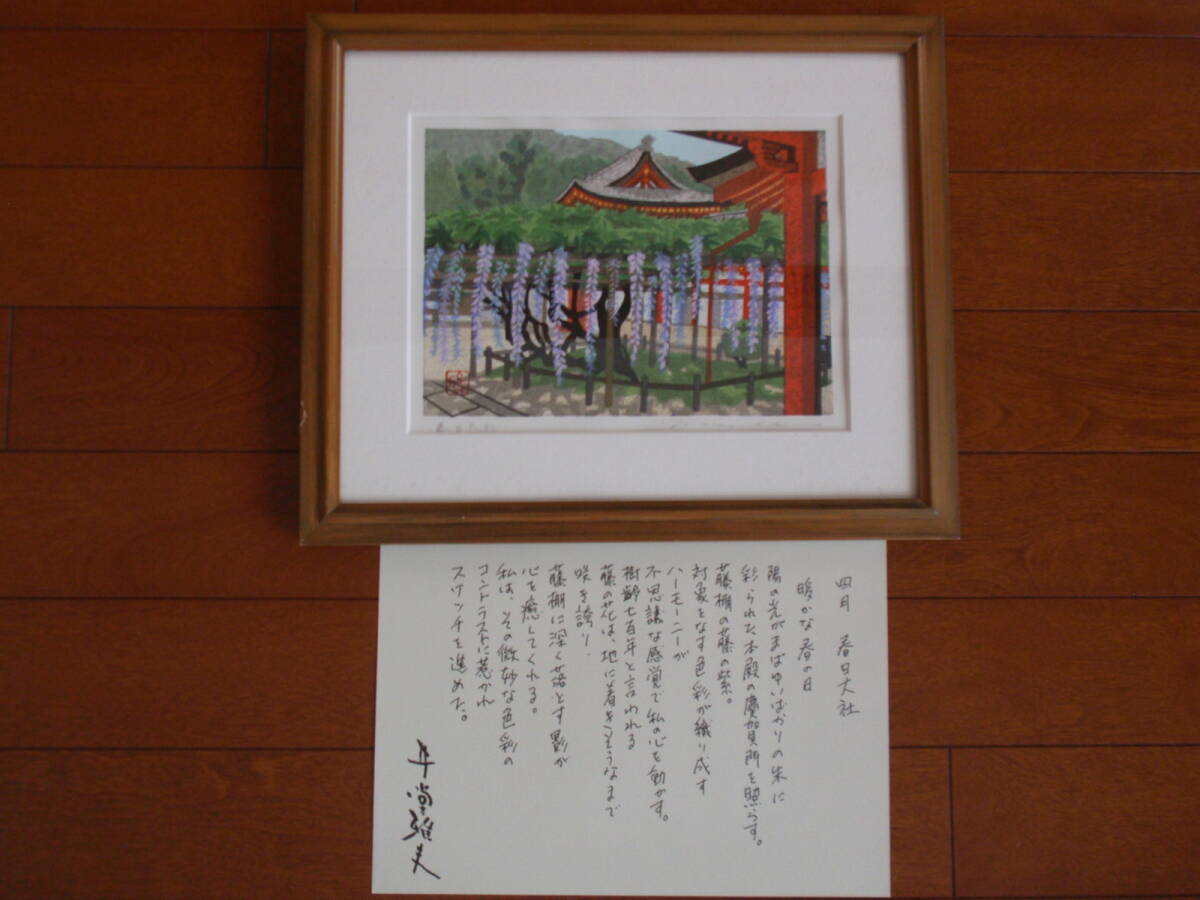 四月 春日大社
暖かな春の日
陽の光がまばゆいばかりの朱に
彩られた本殿の慶賀門を照らす。
藤棚の藤の紫。
対象をなす色彩が織り成す
ハーモーニーが
不思議な感覚で私の心を動かす。
樹齢七百年と言われる
藤の花は、地に着きそうなまで
咲き誇り、
藤棚に深く落とす影が
心を癒してくれる。
私は、その微妙な色彩の
コントラストに惹かれ
スケッチを進めた。
井堂雅夫
春日大社